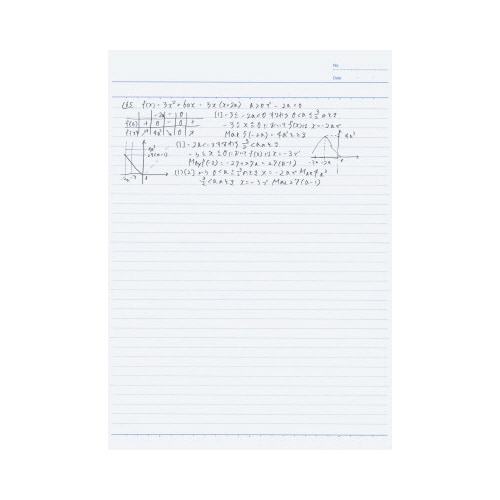 No.
Date
f(x) = 3x²+6ax = 3x(x+2a) a>0で -2a<0
-2a 0
f'(x) + 0 - 0 +
f(x) ↗ 4a³ ↘ 0 ↗
(1) -3≦-2a<0 すなわち 0<a≦3/2 のとき
-3≦x≦0 において f(x)は x=-2aで
Max f(-2a) = 4a³ をとる
(2) -2a<-3 すなわち 3/2<a のとき
-3≦x≦0 において f(x)は x=-3で
Max f(-3) = -27+27a = 27(a-1)
(1)(2)から 0<a≦3/2 のとき x=-2aで Max 4a³
3/2<a のとき x=-3で Max 27(a-1)